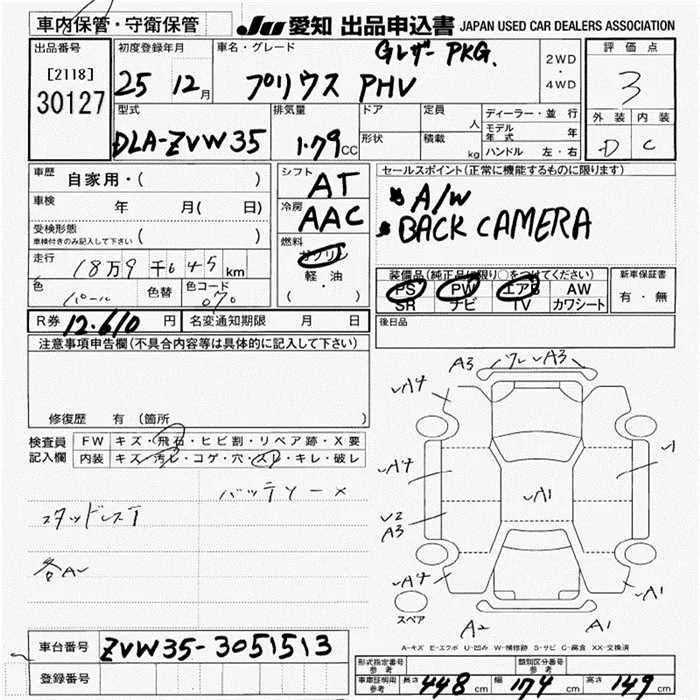 車内保管・守衛保管 JU 愛知 出品申込書 JAPAN USED CAR DEALERS ASSOCIATION
出品番号 初度登録年月 車名・グレード Gレザー PKG. 2WD・4WD 評価点
[2118]
30127 25 12月 プリウス PHV 3
型式 排気量 ドア 定員 人 ディーラー・並行 外装 内装
DLA-ZVW35 1.79CC 形状 積載 kg モデル年式 年 D C
ハンドル 左・右
車歴 自家用・( ) シフト AT セールスポイント(正常に機能するものに限ります)
車検 年 月( 日) 冷房 AAC A/W
受検形態 車検付きのみ記入して下さい ( ) BACK CAMERA
走行 18万9千645km 燃料 ガソリン 軽・油 ( ・ )
色 パール 色替 色コード 070
装備品(純正品に限り○をつけてください) 新車保証書
PS PW エアB AW 有・無
SR ナビ TV カワシート
R券 12.610円 名変通知期限 月 日 後日品
注意事項申告欄(不具合内容等は具体的に記入して下さい)
修復歴 有 (箇所 )
検査員記入欄 FW キズ・飛石・ヒビ割・リペア跡・X要
内装 キズ・汚レ・コゲ・穴・スレ・キレ・破レ
バッテリー×
スタッドレスT
各A
A3 ワレ A3
A4
A4 A1
2
A3
A4 A1
スペア A2 A1
A-キズ E-エクボ U-凹み W-補修跡 S-サビ C-腐食 XX-交換済
車台番号 ZVW35-3051513
登録番号
形式指定番号 参考 類別区分番号 参考
車庫証明用 参考 長さ 448cm 幅 174cm 高さ 149cm